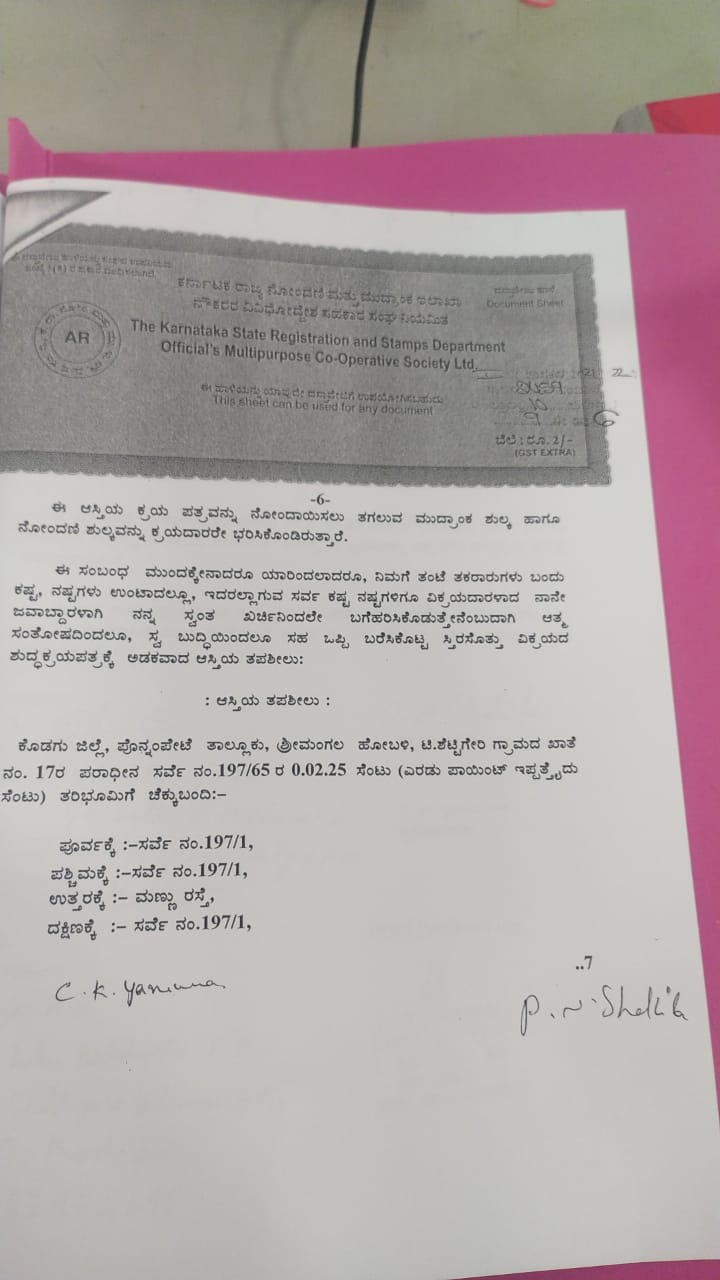 ಕರ್ನಾಟಕ ರಾಜ್ಯ ನೋಂದಣಿ ಮತ್ತು ಮುದ್ರಾಂಕ ಇಲಾಖಾ
ನೌಕರರ ವಿವಿಧೋದ್ದೇಶ ಸಹಕಾರ ಸಂಘ ನಿಯಮಿತ
Document Sheet
AR
The Karnataka State Registration and Stamps Department
Official's Multipurpose Co-Operative Society Ltd.
ಈ ಹಾಳೆಯನ್ನು ಯಾವುದೇ ದಸ್ತಾವೇಜಿಗೆ ಉಪಯೋಗಿಸಬಹುದು
This sheet can be used for any document
ಬೆಲೆ : ರೂ. 2/-
(GST EXTRA)
-6-
ಈ ಆಸ್ತಿಯ ಕ್ರಯ ಪತ್ರವನ್ನು ನೋಂದಾಯಿಸಲು ತಗಲುವ ಮುದ್ರಾಂಕ ಶುಲ್ಕ ಹಾಗೂ
ನೋಂದಣಿ ಶುಲ್ಕವನ್ನು ಕ್ರಯದಾರರೇ ಭರಿಸಿಕೊಂಡಿರುತ್ತಾರೆ.
ಈ ಸಂಬಂಧ ಮುಂದಕ್ಕೇನಾದರೂ ಯಾರಿಂದಲಾದರೂ, ನಿಮಗೆ ತಂಟೆ ತಕರಾರುಗಳು ಬಂದು
ಕಷ್ಟ, ನಷ್ಟಗಳು ಉಂಟಾದಲ್ಲೂ, ಇದರಲ್ಲಾಗುವ ಸರ್ವ ಕಷ್ಟ ನಷ್ಟಗಳಿಗೂ ವಿಕ್ರಯದಾರಳಾದ ನಾನೇ
ಜವಾಬ್ದಾರಳಾಗಿ ನನ್ನ ಸ್ವಂತ ಖರ್ಚಿನಿಂದಲೇ ಬಗೆಹರಿಸಿಕೊಡುತ್ತೇನೆಂಬುದಾಗಿ ಆತ್ಮ
ಸಂತೋಷದಿಂದಲೂ, ಸ್ವ ಬುದ್ಧಿಯಿಂದಲೂ ಸಹ ಒಪ್ಪಿ ಬರೆಸಿಕೊಟ್ಟ ಸ್ತಿರಸೊತ್ತು ವಿಕ್ರಯದ
ಶುದ್ಧಕ್ರಯಪತ್ರಕ್ಕೆ ಅಡಕವಾದ ಆಸ್ತಿಯ ತಪಶೀಲು:
: ಆಸ್ತಿಯ ತಪಶೀಲು :
ಕೊಡಗು ಜಿಲ್ಲೆ, ಪೊನ್ನಂಪೇಟೆ ತಾಲ್ಲೂಕು, ಶ್ರೀಮಂಗಲ ಹೋಬಳಿ, ಟಿ.ಶೆಟ್ಟಿಗೇರಿ ಗ್ರಾಮದ ಖಾತೆ
ನಂ. 17ರ ಪರಾಧೀನ ಸರ್ವೆ ನಂ.197/65 ರ 0.02.25 ಸೆಂಟು (ಎರಡು ಪಾಯಿಂಟ್ ಇಪ್ಪತ್ತೈದು
ಸೆಂಟು) ತರಿಭೂಮಿಗೆ ಚೆಕ್ಕುಬಂದಿ:–
ಪೂರ್ವಕ್ಕೆ :–ಸರ್ವೆ ನಂ.197/1,
ಪಶ್ಚಿಮಕ್ಕೆ :–ಸರ್ವೆ ನಂ.197/1,
ಉತ್ತರಕ್ಕೆ :– ಮಣ್ಣು ರಸ್ತೆ,
ದಕ್ಷಿಣಕ್ಕೆ :– ಸರ್ವೆ ನಂ.197/1,
..7
C. K.
P. N.